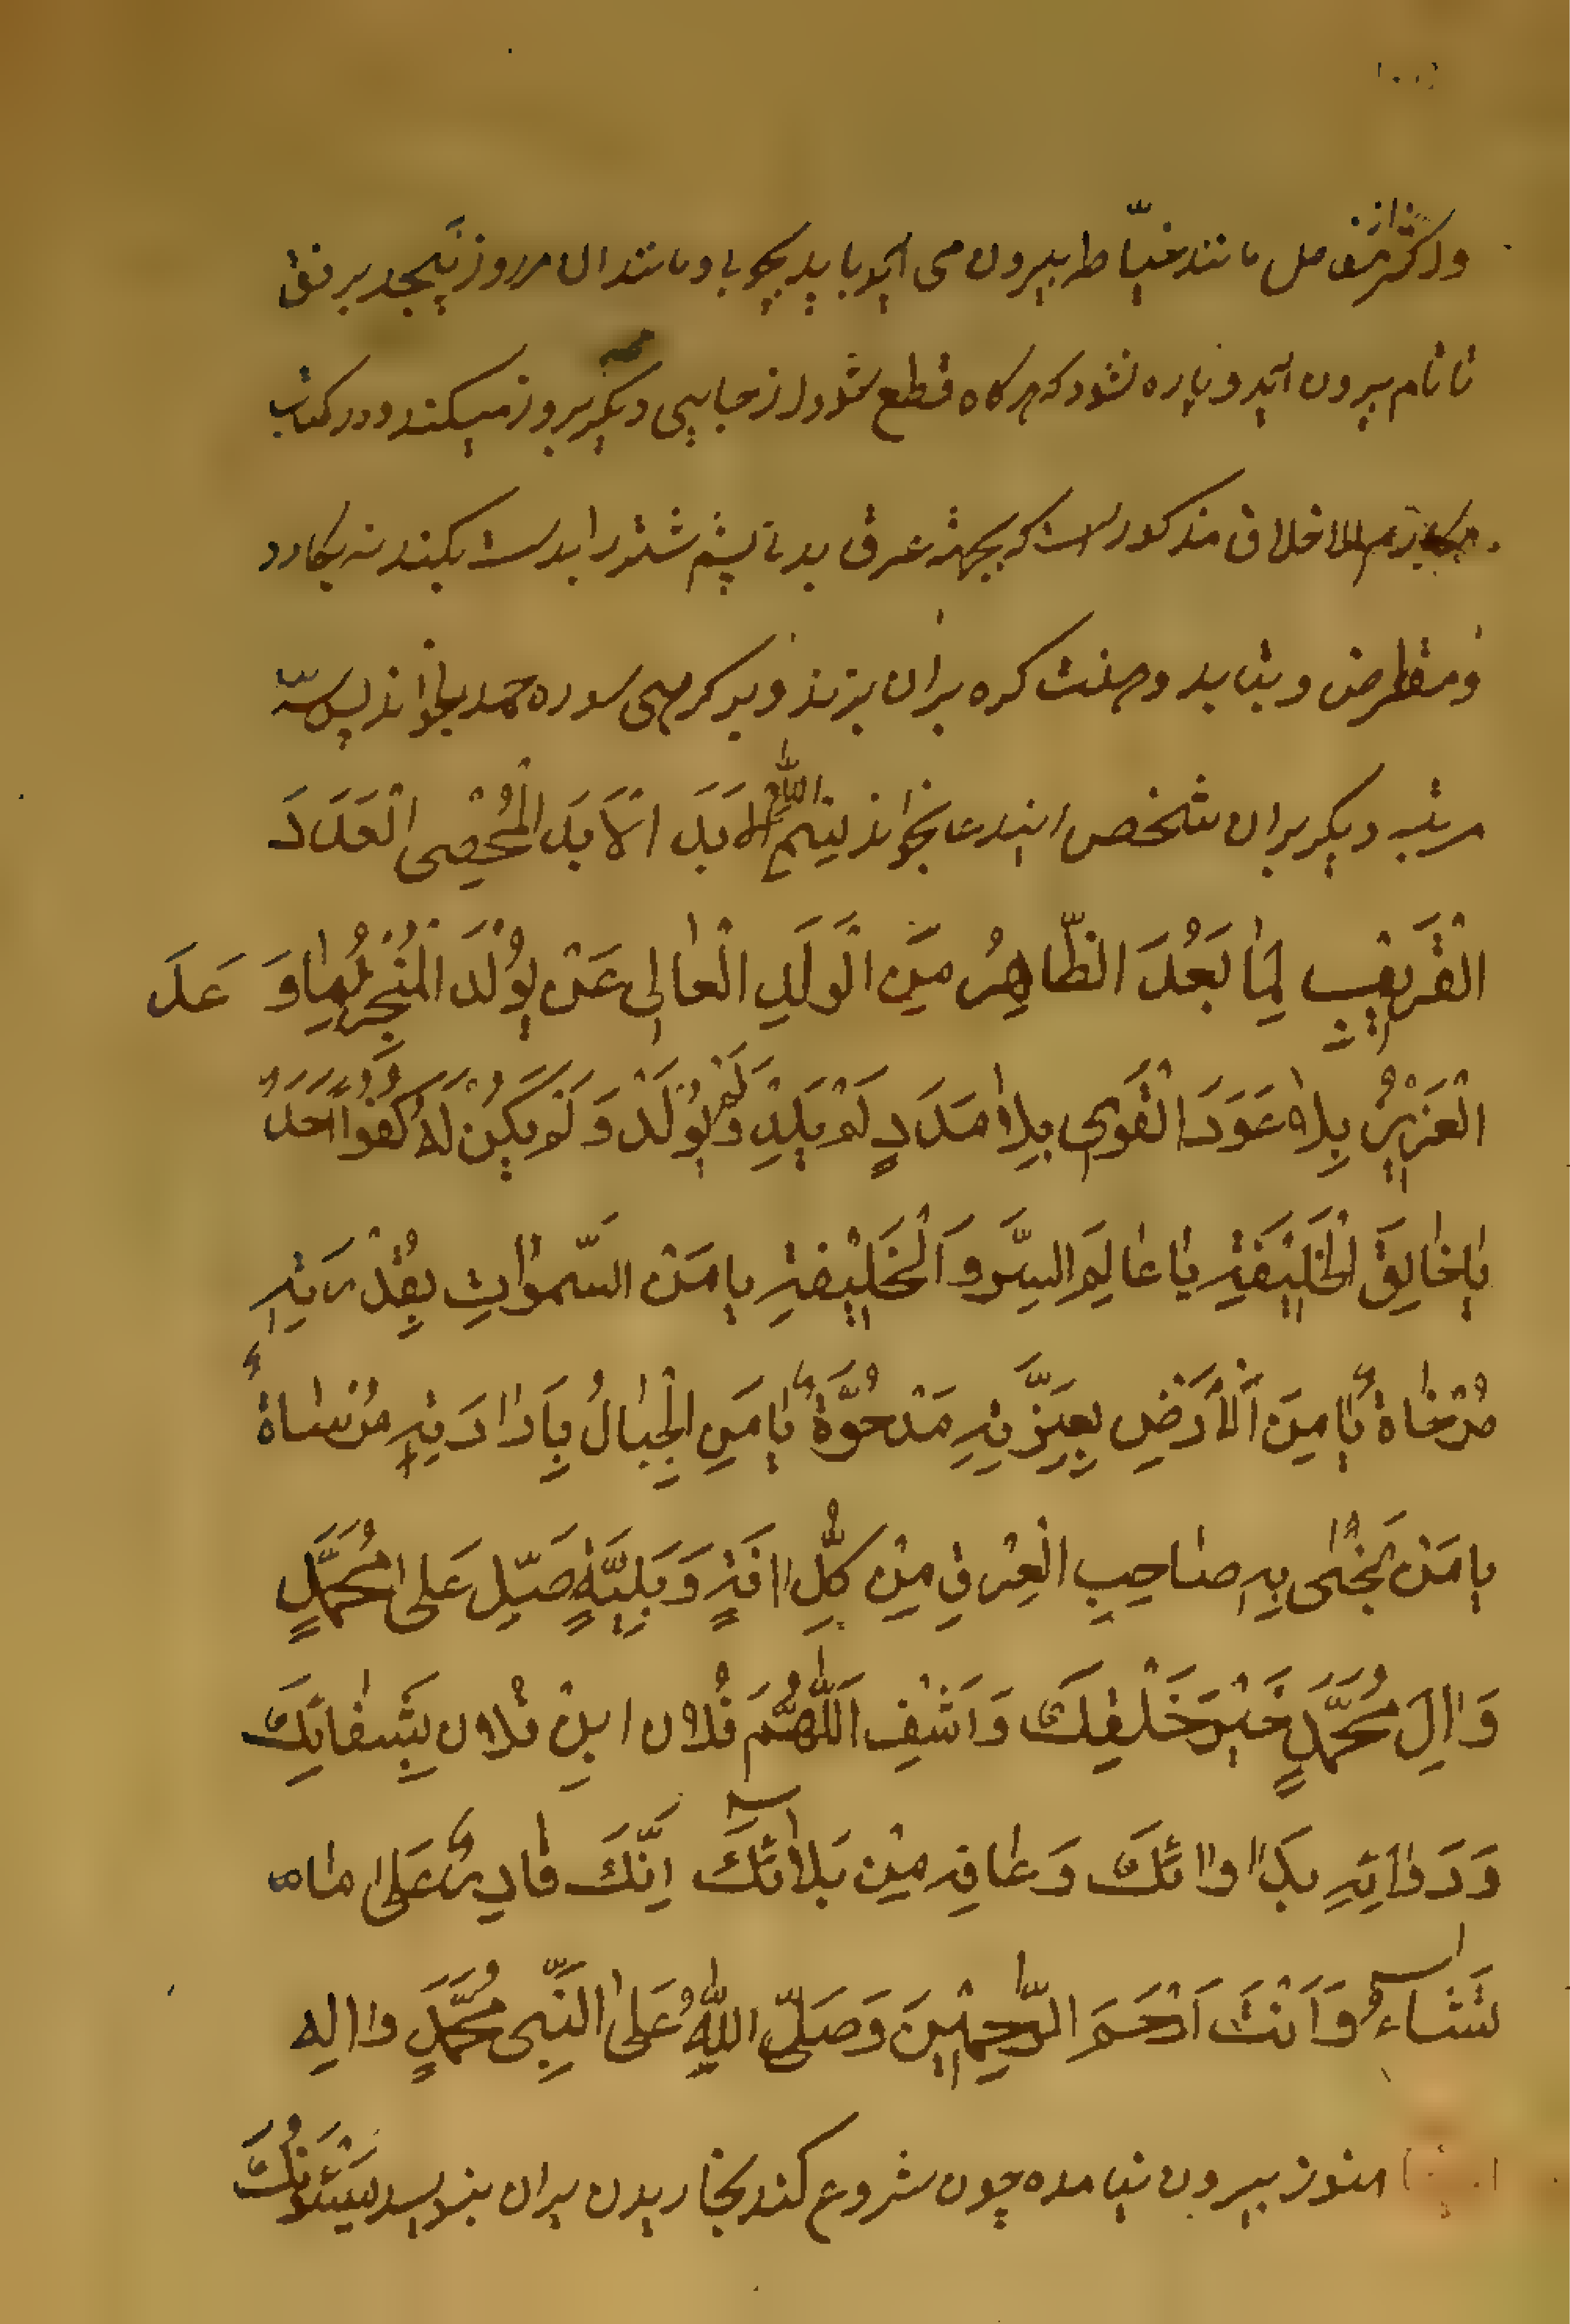 واکثر از مفاصل مانند خیاط بیرون می اید باید بچوبا و مانند ان هر روز بپیچد برفق
تا تمام بیرون اید و پاره نشود که هرکاه قطع شود از جایی دیکر بروز میکند و در کتاب
مکارم الاخلاق مذکور است که بجهة عرق بدنا پشم شتر را بدست بکند نه بکارد
و مقراض و بتابد و هفت کره بران بزند و بر هر کرهی سوره حمد بخواند پس سه
مرتبه دیکر بران شخص ایندعا بخواند بِسْمِ اللّٰهِ الْاَبَدَ الْاَبَدَ الْمُحْصِی الْعَدَدَ
الْقَرِیْبِ لِمٰا بَعُدَ الطّاهِرُ مِنَ الْوَلَدِ الْعٰالِی عَنْ یُوْلَدَ الْمُنْجِزُ لِمٰا وَعَدَ
الْعَزِیْزُ بِلاٰ عَدَدَ الْقَوِی بِلاٰ مَدَدٍ لَمْ یَلِدْ وَلَمْ یُوْلَدْ وَلَمْ یَکُنْ لَهُ کُفُواً اَحَدٌ
یٰا خٰالِقَ الْخَلِیْفَةِ یٰا عٰالِمَ السِّرَّ وَ الْخَلِیْفَةِ یٰا مَنْ السَّمٰوٰاتِ بِقُدْرَتِهِ
مُرْخٰاةٌ یٰا مَنِ الْاَرْضِ بِعِزَّتِهِ مَدْحُوَّةٌ یٰا مَنِ الْجِبٰالُ بِاِرٰادَتِهِ مُرْسٰاةٌ
یٰا مَنْ نَجٰی بِهِ صٰاحِبِ الْغَرَقِ مِنْ کُلِّ اٰفَةٍ وَ بَلِیَّةٍ صَلِّ عَلٰی مُحَمَّدٍ
وَ اٰلِ مُحَمَّدٍ خَیْرِ خَلْقِکَ وَ اشْفِ اَللّٰهُمَّ فُلٰان ابْنِ فُلٰان بِشِفٰائِکَ
وَ دَوٰائِهِ بِدَوٰائِکَ وَ عٰافِهِ مِنْ بَلٰائِکَ اِنَّکَ قٰادِرٌ عَلٰی مٰا
تَشٰاءُ وَ اَنْتَ اَرْحَمَ الرّٰحِمِیْنَ وَ صَلَّی اللّٰهُ عَلَی النَّبِی مُحَمَّدٍ وَ اٰلِه
هنوز بیرون نیامده چون شروع کند بخاریدن بران بنویسد یَسْئَلُوْنَکَ